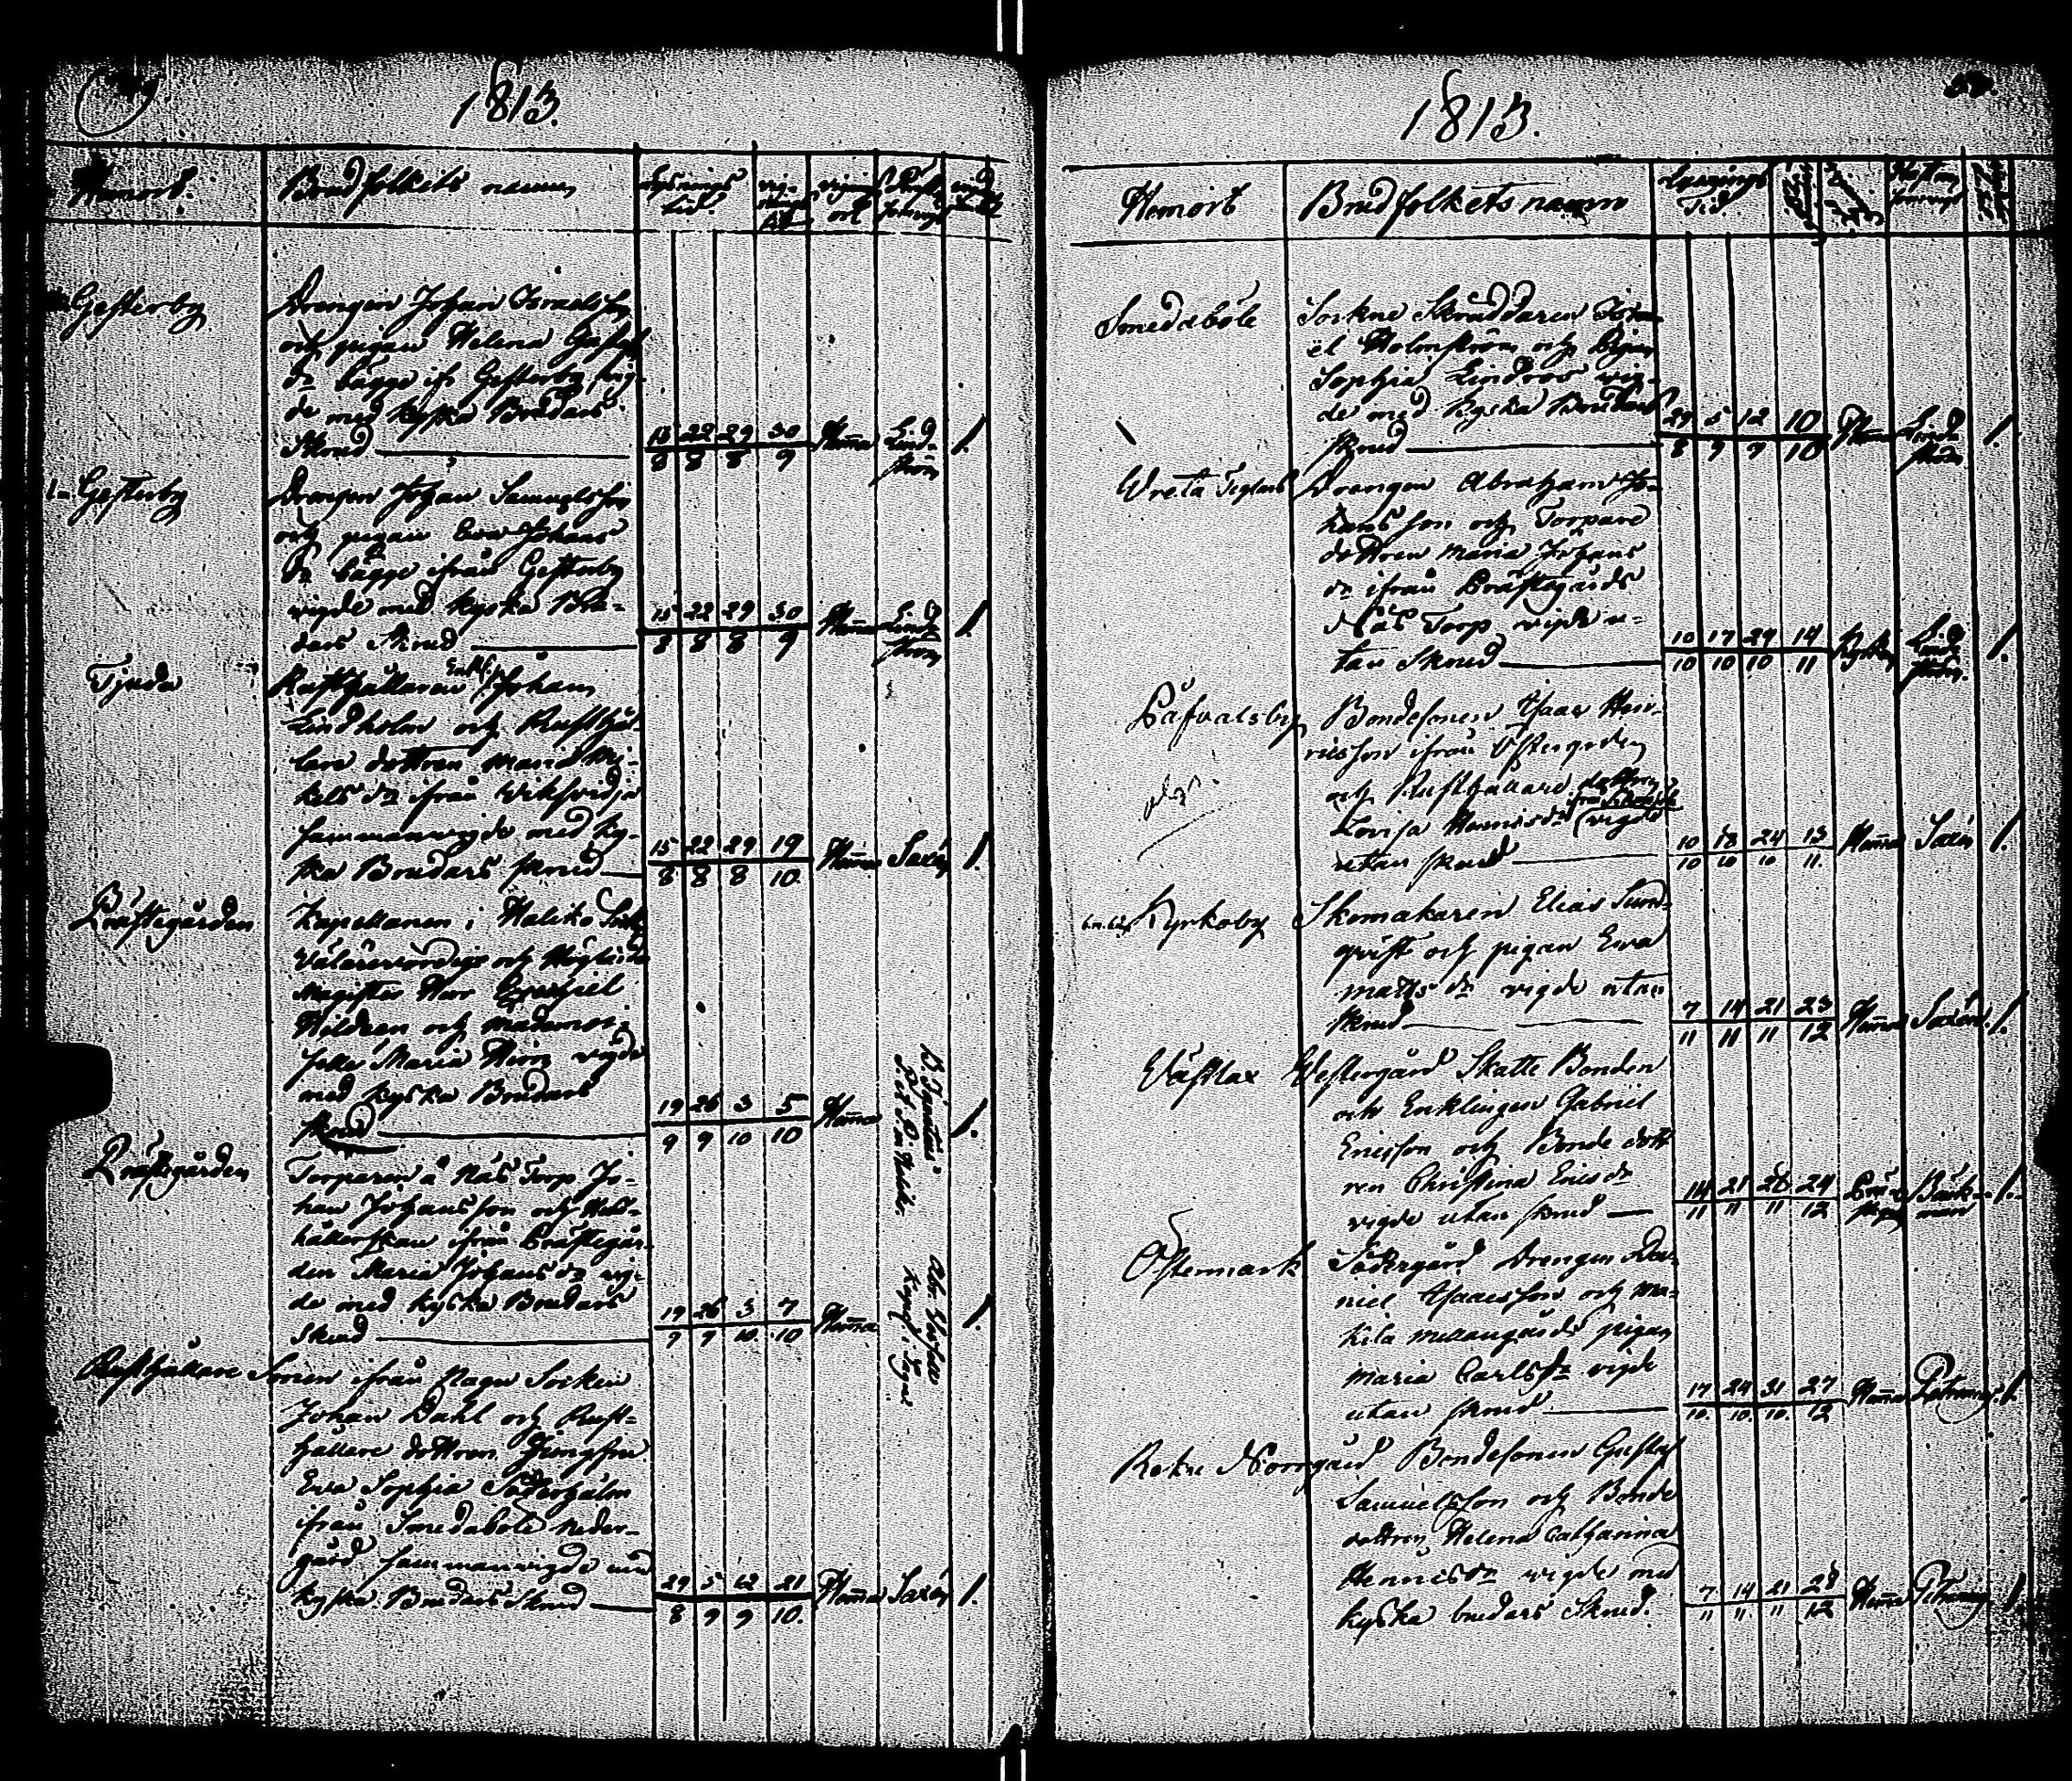 1813.
Hemort.
Brudfolkets namn
Lysnings tid.
Gesterby
Drengen Johan Israelsson
och pigan Helena Gustafs
dr bägge ifr Gesterby vig-
de med kyska Brudars
Skrud
15 22 29 30 Hema Lind-
8 8 8 9 ström 1.
Gesterby
Drengen Johan Samuelsson
och pigan Eva Johans
dr bägge ifrån Gesterby
vigde med kyska Bru-
dars Skrud
15 22 29 30 Hema Lind
8 8 8 9 ström 1.
Tjuda
Rusthållaren Enkl. Johan
Lindholm och Rusthål-
lare dottren Maria Mi-
kels dr ifrån Wiksvidja
sammanvigde med ky-
ska Brudars skrud
15 22 29 19 Hema Saxén 1.
8 8 8 10.
Prästegården
Kapellanen i Haliko Sockn
Välärevördige och Höglärde
Magister Herr
och Mademoi-
selle Maria vigde
med kyska Brudars
Skrud
19 26 3 5 Hema 1.
9 9 10 10
Prästegården
Torparen å Näs Torp Jo-
han Johansson och Hus-
hållerskan ifrån Prästegår-
den Maria Johans dr vig-
de med kyska Brudars
Skrud
19 26 3 7 Hema 1.
9 9 10. 10
Rusthållare Sonen ifrån Nagu Socken
Johan Dahl och Rust-
hållare dottren Jungfru
Eva Sophia Söderholm
ifrån Smedaböle Neder-
gård sammanvigde med
kyska Brudars Skrud
29 5 12 21 Hema Saxén 1.
8 9 9 10.
1813.
Hemort
Brudfolkets namn
Lysnings Tid
Smedaböle
Sockne Skräddaren
el Holmström och Pigan
Sophia Lindroos vig-
de med kyska Brudars
skrud
29 5 12 10 Hema Lind
8 9 9 10 ström 1.
Wreta
Drengen Abraham Jo-
hansson och Torpare
dottren Maria Johans
dr ifrån Prästegårds
Näs Torp vigde u-
tan Skrud
10 17 24 14 Kyrkan Lind
10 10 10 11 ström. 1.
Påfvalsby
Bondesonen Isaac Hen-
ricsson ifrån Östergården
och Rusthållare dottren
Lovisa Henricsdr vigde
utan skrud
10 18 24 13 Hema Saxén 1.
10 10 10 11.
Kyrkoby
Skomakaren Elias Sund-
qvist och pigan Eva
Matts dr vigde utan
skrud
7 14 21 23 Hema Saxén. 1.
11 11 11 12
Västlax
Westergård Skatte Bonden
och Enklingen Gabriel
Ericsson och Bonde dott
ren Christina Erics dr
vigde utan skrud
14 21 28 24 Bäck- 1.
11 11 11 12 man
Östermark
Södergård Drengen Da-
niel Isaacsson och
Mellangårds pigan
Maria Carls dr vigde
utan skrud
17 24 31 27 Hema 1.
10. 10. 10. 12
Reku Norrgård
Bondesonen Gustaf
Samuelsson och Bonde
dottren Helena Catharina
Henricsdr vigde med
kyska brudars Skrud.
7 14 21 28 Hema 1.
11 11. 11 12